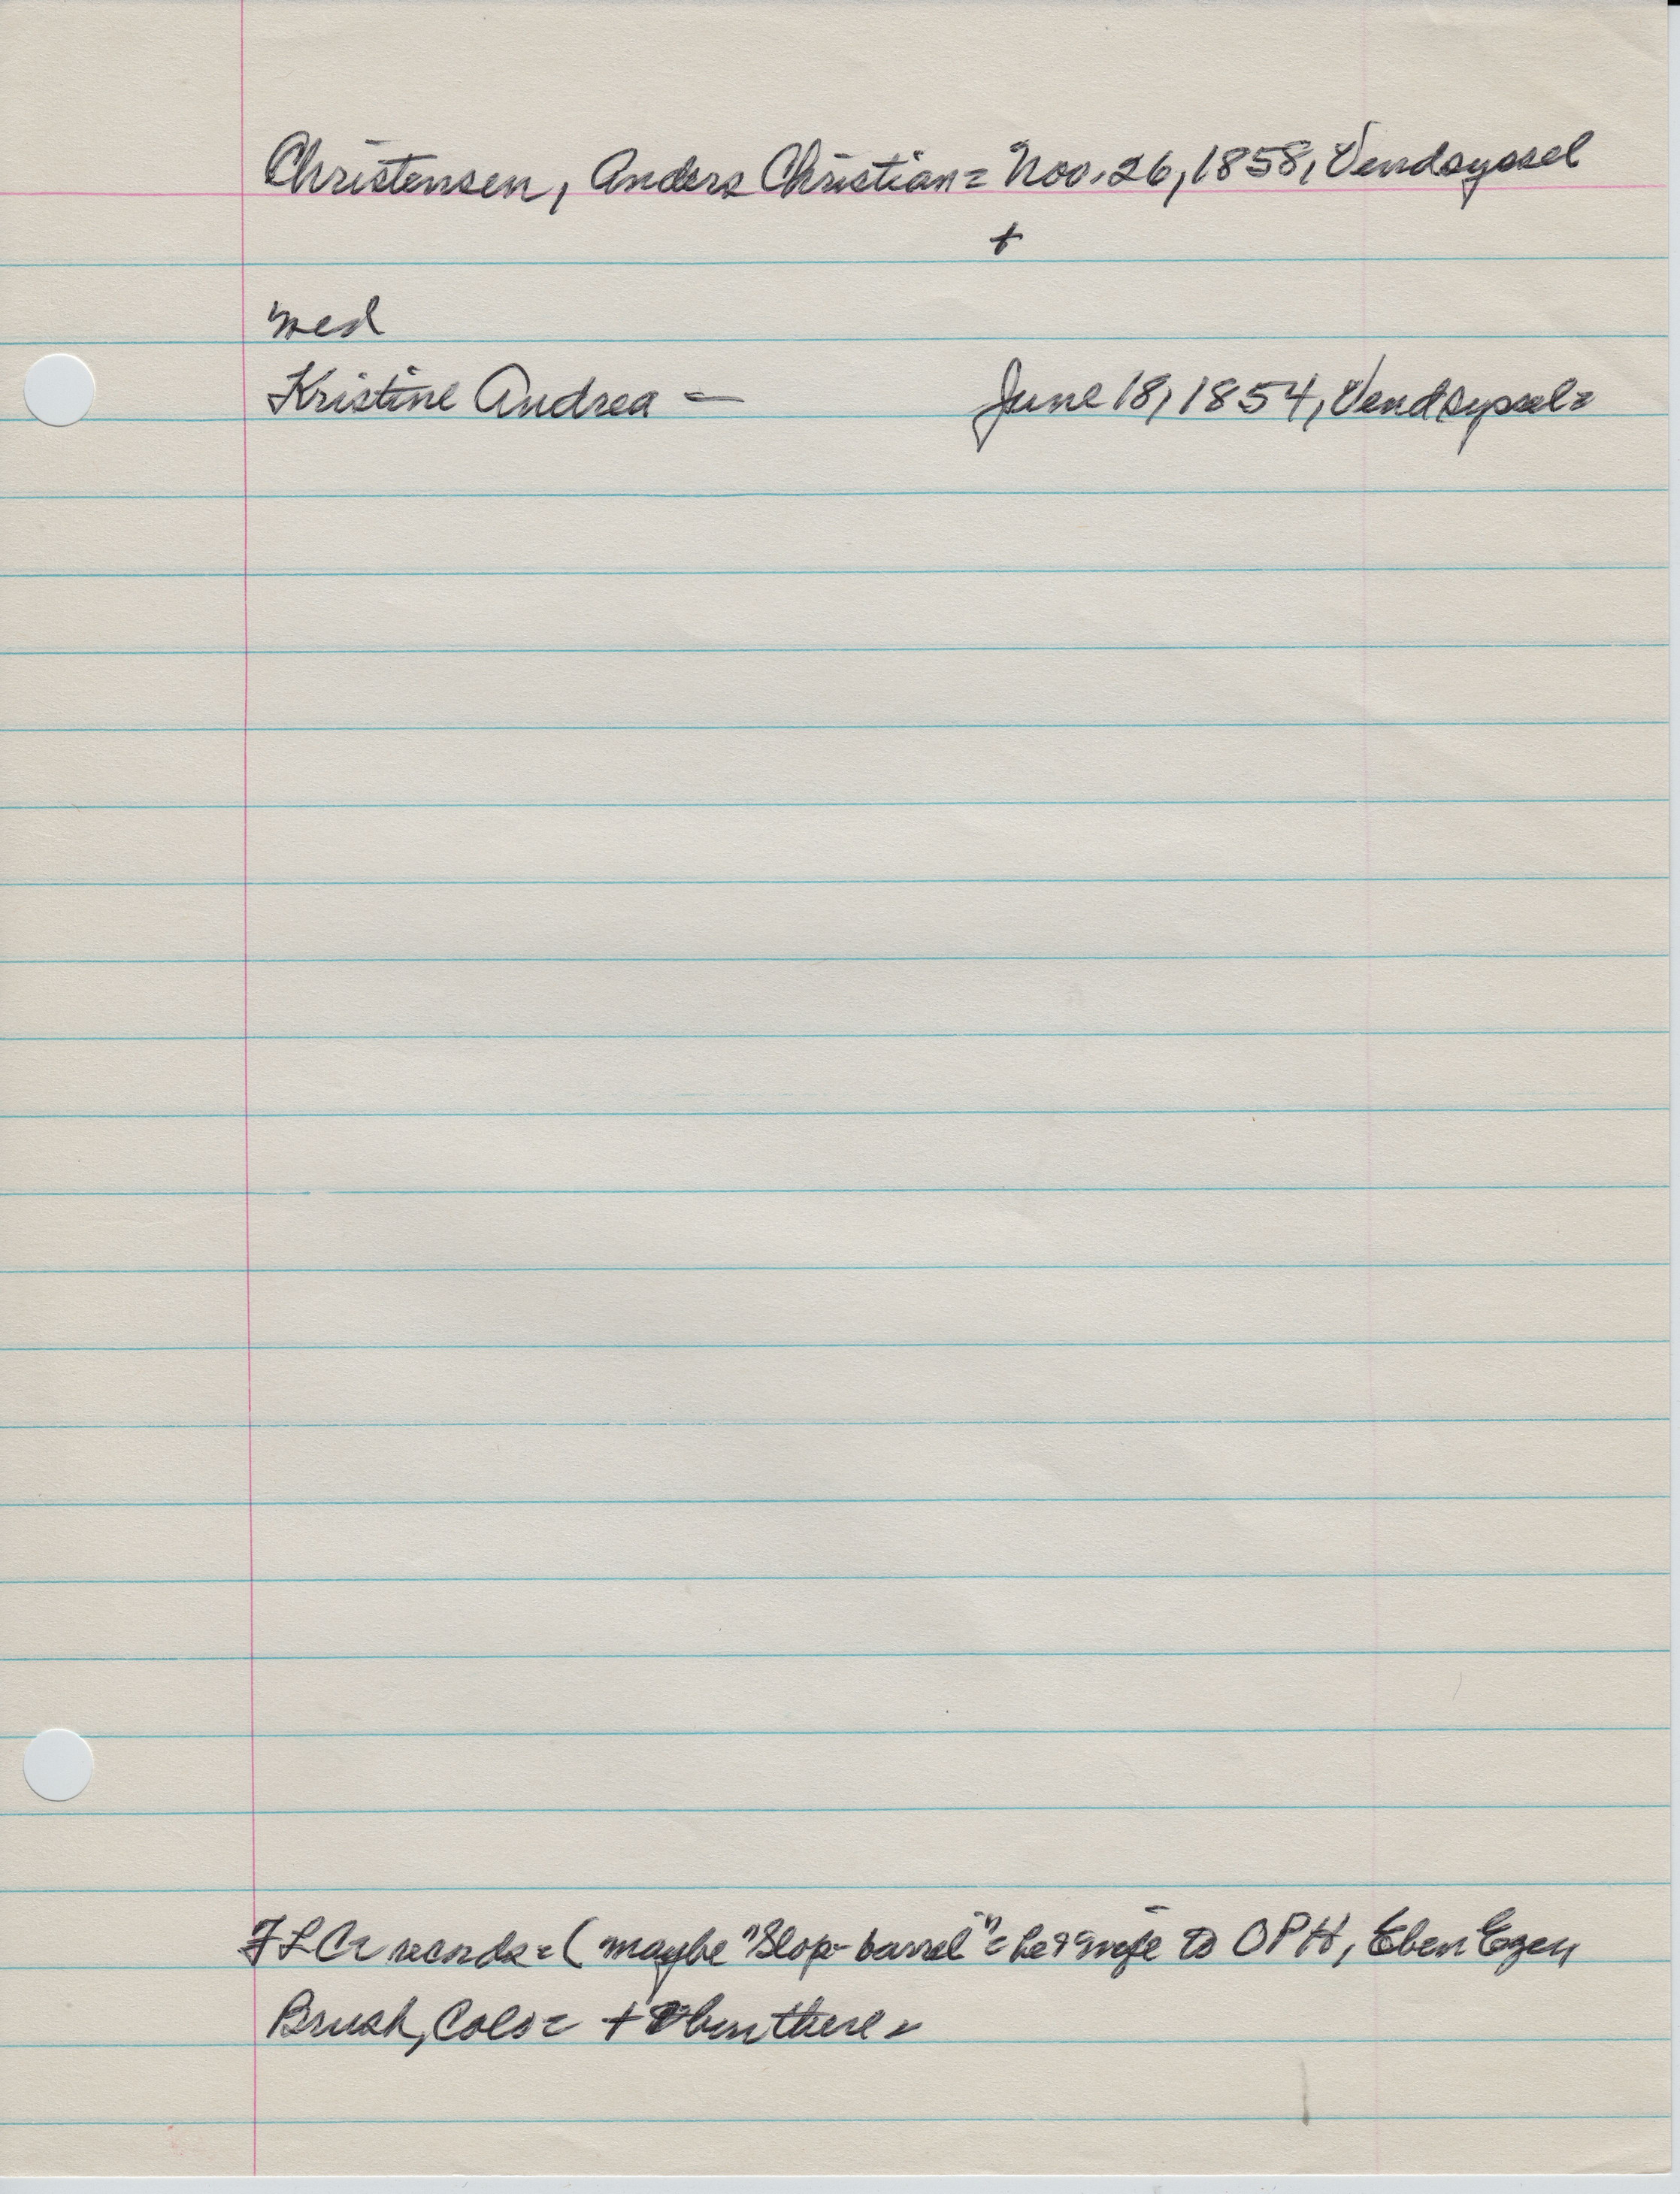 Christensen, Anders Christian = Nov. 26, 1858, Vendsyssel
+
med
Kristine Andrea — June 18, 1854, Vendsyssel =
records = ( maybe "Slop-barrel" = he & wife to OPH, Eben Ezer,
Brush, Colo = + there